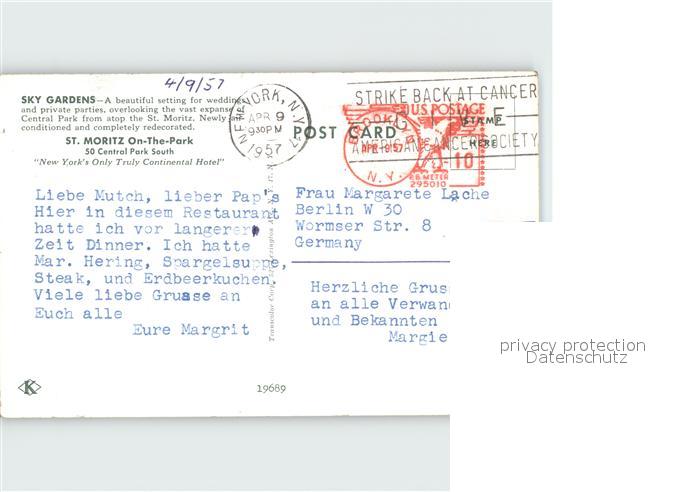 4/9/57
SKY GARDENS—A beautiful setting for weddings
and private parties, overlooking the vast expanse of
Central Park from atop the St. Moritz. Newly air
conditioned and completely redecorated.
ST. MORITZ On-The-Park
50 Central Park South
"New York's Only Truly Continental Hotel"
NEW YORK, N.Y.
APR 9
930PM
1957
STRIKE BACK AT CANCER
AMERICAN CANCER SOCIETY
POST CARD
STAMP
HERE
U.S. POSTAGE
BROOKLYN
APR-1957
N.Y.
10
P.B. METER
295010
Liebe Mutch, lieber Pap's
Hier in diesem Restaurant
hatte ich vor langerer
Zeit Dinner. Ich hatte
Mar. Hering, Spargelsuppe,
Steak, und Erdbeerkuchen
Viele liebe Grusse an
Euch alle
Eure Margrit
Frau Margarete Lache
Berlin W 30
Wormser Str. 8
Germany
Herzliche Grus
an alle Verwan
und Bekannten
Margie
K
19689
privacy protection
Datenschutz